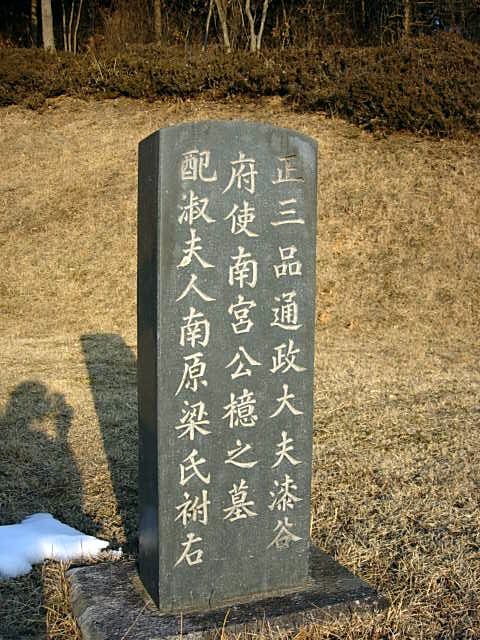 正三品通政大夫漆谷
府使南宮公檍之墓
配淑夫人南原梁氏祔右